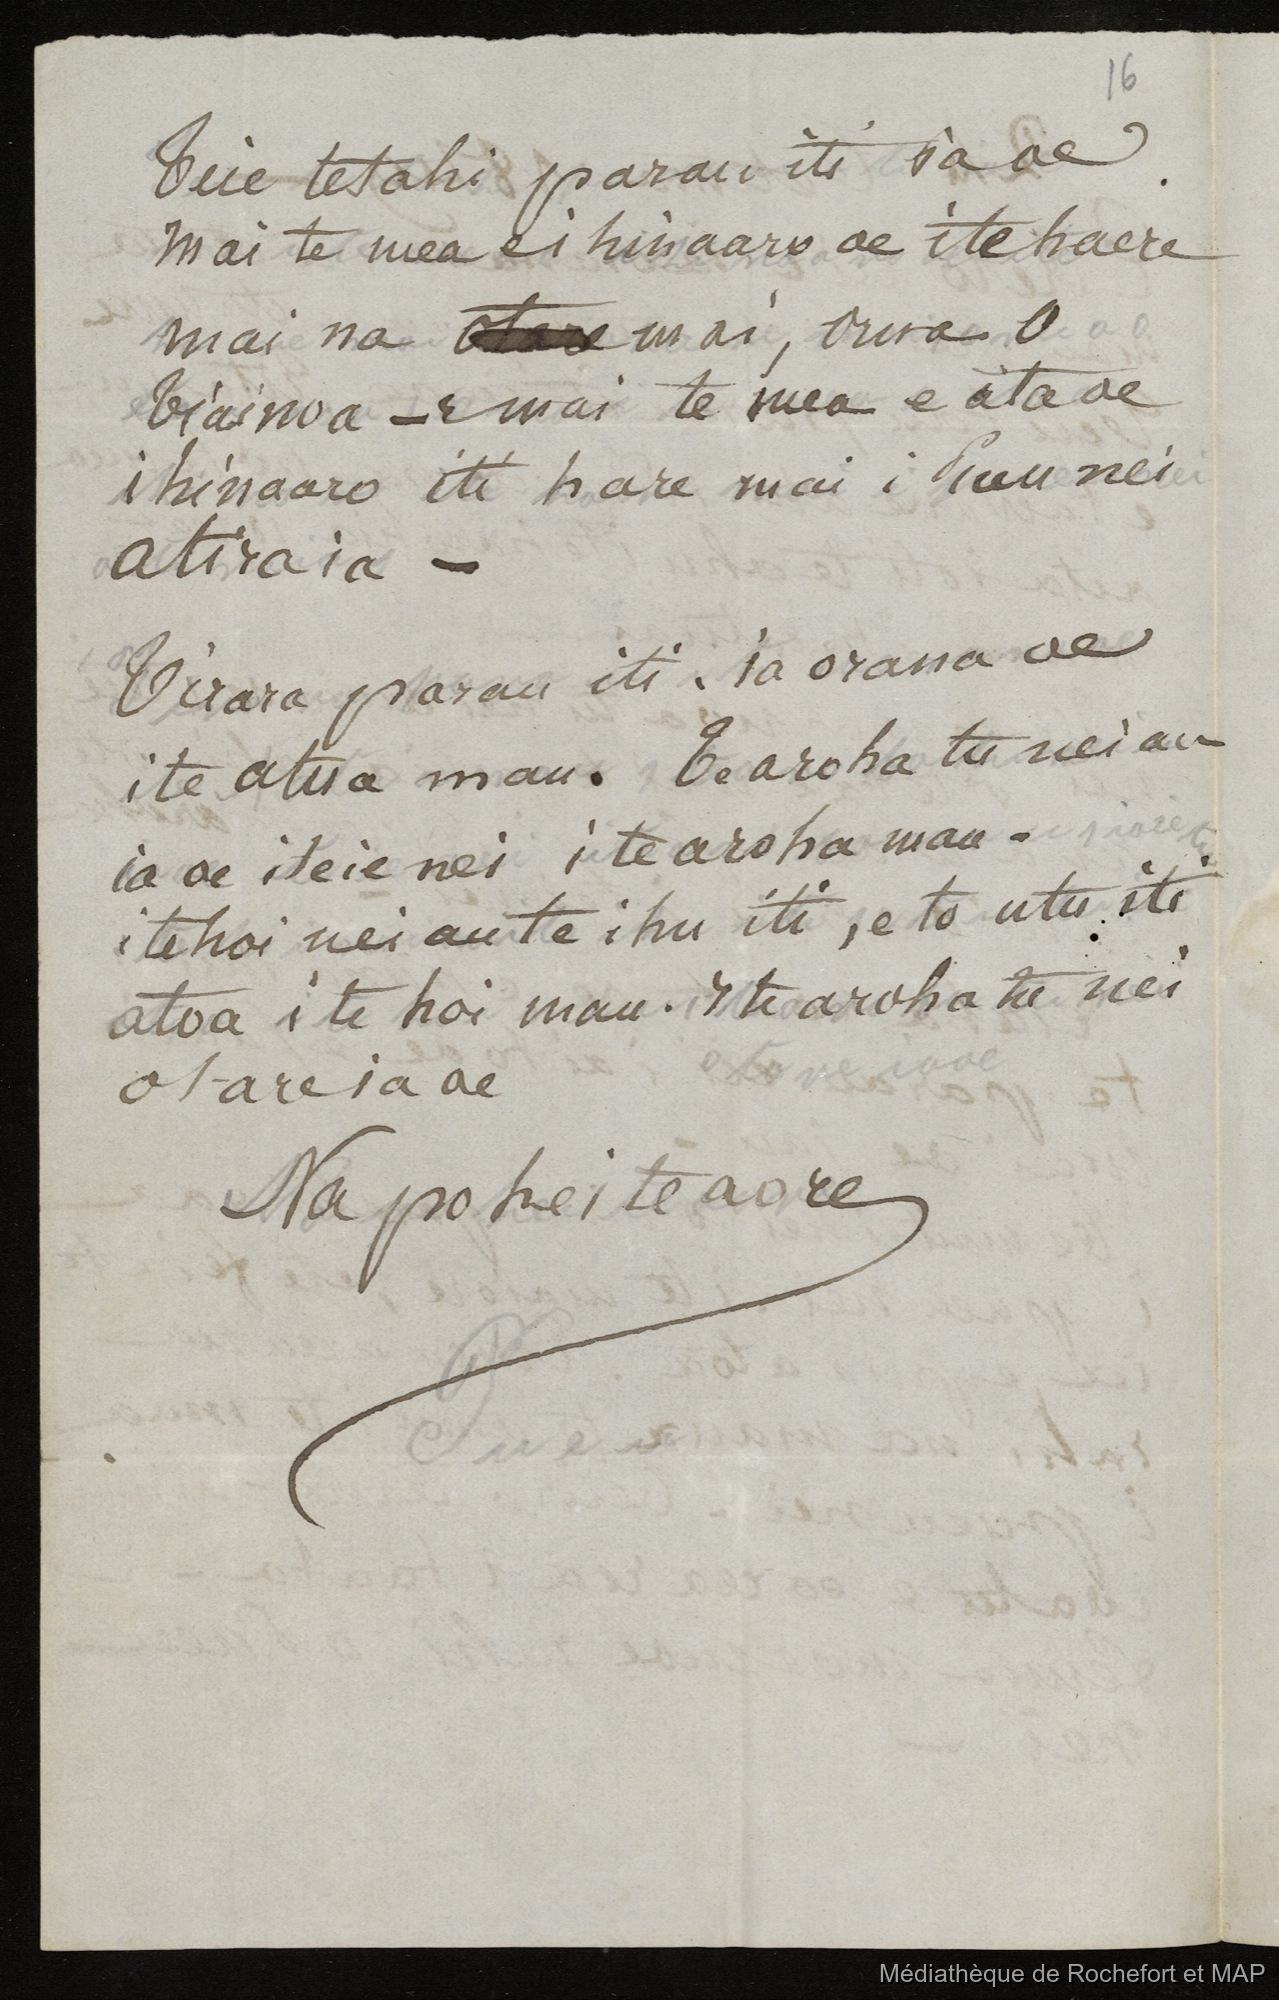 16
Teie tetahi parau iti ia oe
mai te mea ei hinaaro oe ite haere
mai na mai, orua o
Tiainoa - mai te mea e aita oe
i hinaaro iti hare mai i Pueu nei
atiraia -
Tirara parau iti. ia orana oe
ite atua mau. Te aroha tu nei au
ia oe iteie nei i te aroha mau -
itehoi nei au te ihu iti, e to utu iti
atoa i te hoi mau. I te aroha tu nei
otare ia oe
Na poheiteaore
Pueu
Médiathèque de Rochefort et MAP